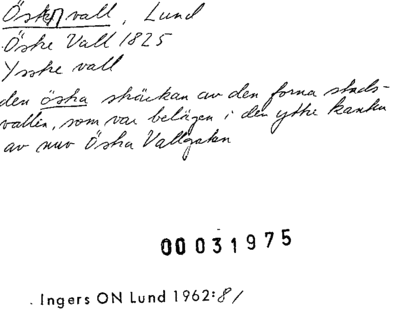 Östen vall, Lund
Östre Vall 1825
Ystre vall
den östra sträckan av den forna stads-
vallen, som var belägen i den yttre kanten
av nuv Östra Vallgatan
00031975
. Ingers ON Lund 1962:81